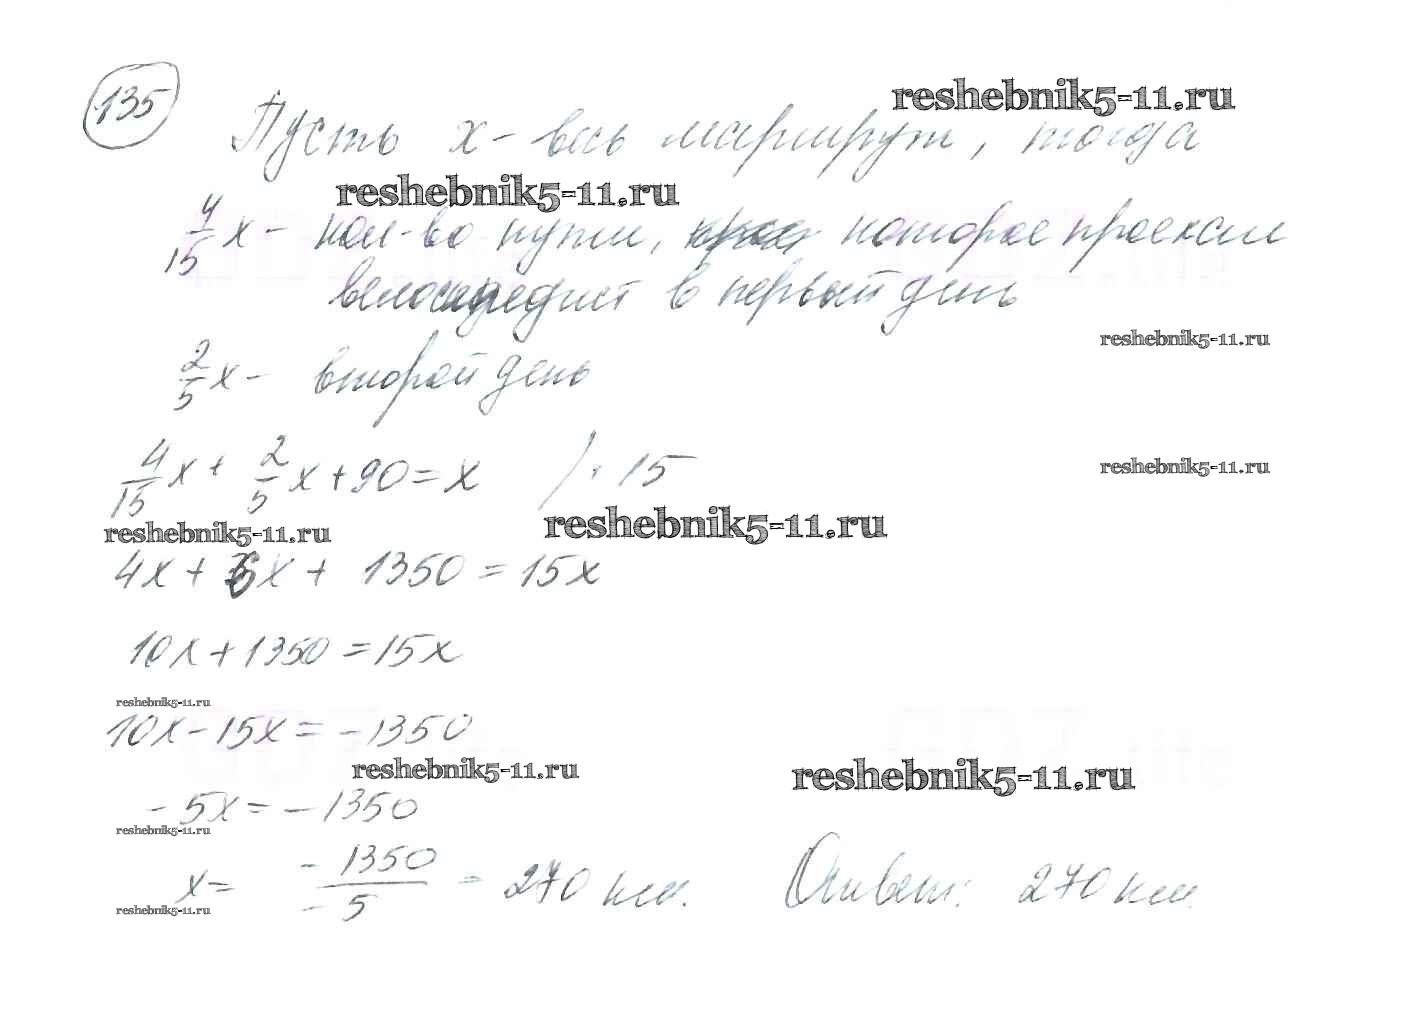 135
reshebnik5-11.ru
Пусть x - весь маршрут, тогда
reshebnik5-11.ru
4/15 x - кол-во пути, которое проехал
велосипедист в первый день
reshebnik5-11.ru
2/5 x - второй день
4/15 x + 2/5 x + 90 = x / · 15
reshebnik5-11.ru
reshebnik5-11.ru
reshebnik5-11.ru
4x + 6x + 1350 = 15x
10x + 1350 = 15x
reshebnik5-11.ru
10x - 15x = -1350
reshebnik5-11.ru
reshebnik5-11.ru
-5x = -1350
reshebnik5-11.ru
x = -1350/-5 = 270 км. Ответ: 270 км.
reshebnik5-11.ru